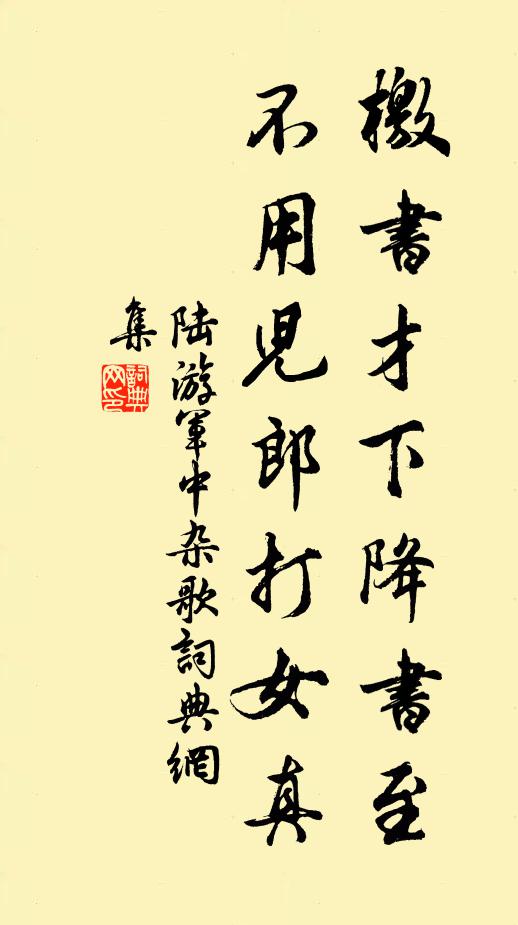 檄書才下降書至
不用児郎打女真
陆游軍中杂歌詞典網
集
詞典
网印